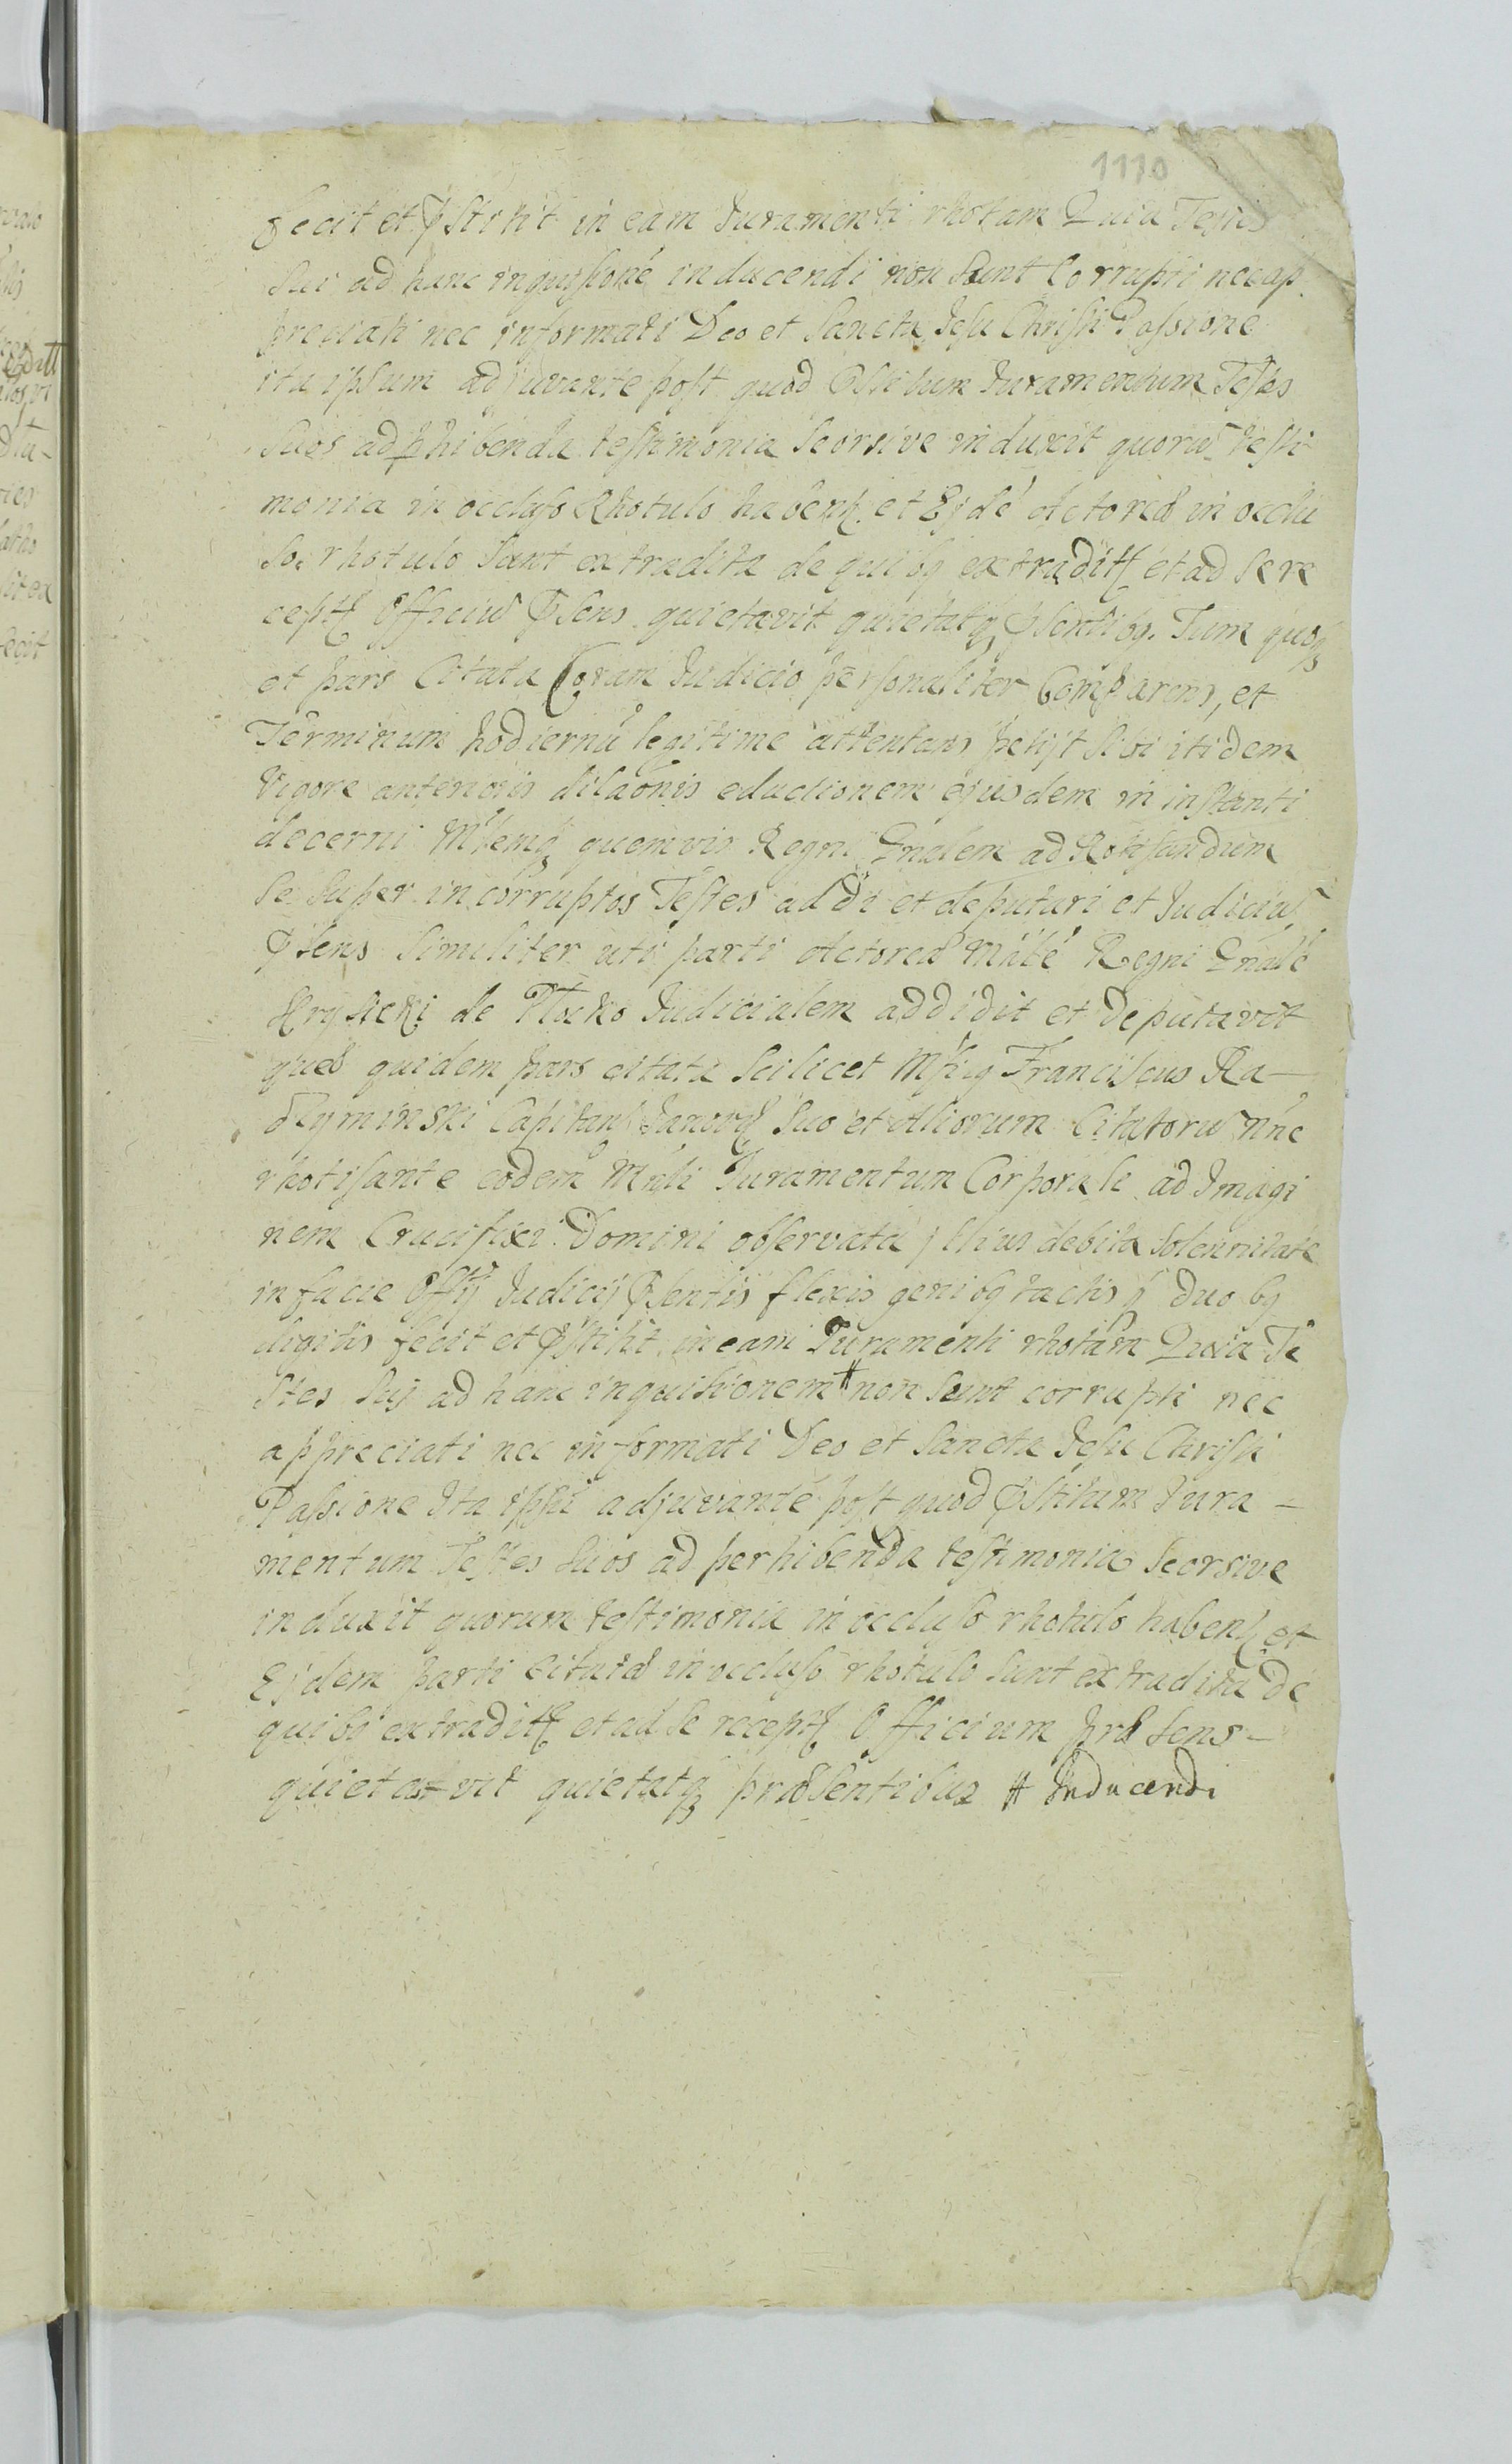 1110
fecit et pstitit in eam Juramenti rhotam Quia Testes
sui ad hanc inquisitioné inducendi non sunt Corrupti nec ap
preciati nec informati Deo et Sancta Jesu Christi Passione
ita ipsum adiuvante post quod pstitum Juramentum Testes
suos ad phibenda testimonia seorsive induxit quorū testi
monia in occluso Rhotulo habent et Ejdé Actoreæ in occlu
so rhotulo sunt extradita de quibq extraditt et ad se re
ceptt Officiū psens quietavit quietatq psentibq. Tum quoq
et pars Citata Coram Judicio personaliter Comparens, et
Terminum hodiernū legitime attentans petijt sibi itidem
Vigore anterioris dilaonis eductionem ejusdem in instanti
decerni Mlemq quemvis Regni Gnalem ad Rotisandum
se super incorruptos Testes addi et deputari et Judiciū
psens similiter uti parti Actoreæ Mnlé Regni Gnalé
de Plocko Judicialem addidit et deputavit
quæ quidem pars citata scilicet Mficq Franciscus Ra–
dzyminski Capitan Janovq suo et Aliorum Citatorū nnc
rhotisante eodem Mnli Juramentum Corporale ad Imagi
nem Crucifixi Domini observata illius debita solennitate
in facie Offij Judicij psentis flexis genibq tactis q duobq
digitis fecit et pstitit in eam Juramenti rhotam Quia Te
stes sui ad hanc inquisitionem # non sunt corrupti nec
appreciati nec informati Deo et Sancta Jesu Christi
Passione Ita ipsū adjuvante post quod pstitum Jura–
mentum Testes suos ad perhibenda testimonia seorsive
induxit quorum testimonia in occluso rhotulo habent et
Ejdem parti Citatæ in occluso rhotulo sunt extradita de
quibq extraditt et ad se receptt Officium præsens–
quietavit quietatq præsentibus # Inducendi